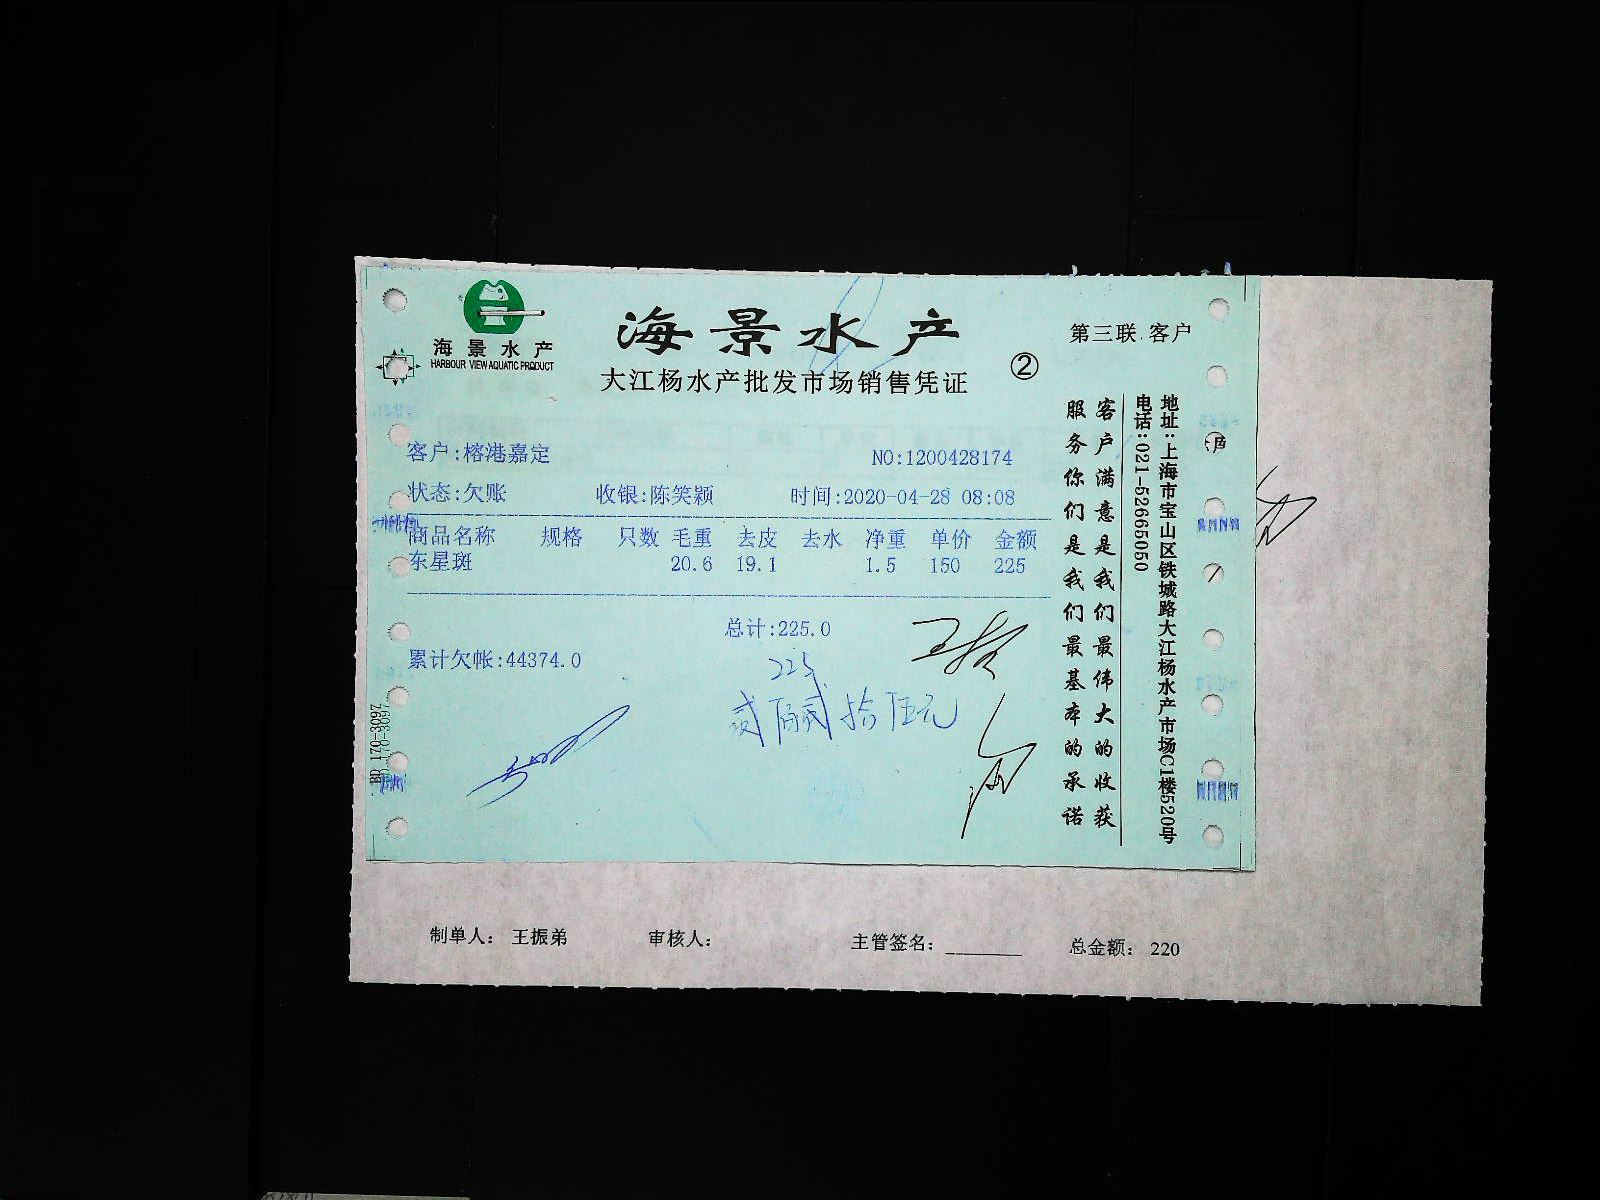 海景水产
HARBOUR VIEW AQUATIC PRODUCT
海景水产
大江杨水产批发市场销售凭证
②
第三联 客户
客户:榕港嘉定
NO:1200428174
状态:欠账 收银:陈笑颖 时间:2020-04-28 08:08
商品名称 规格 只数 毛重 去皮 去水 净重 单价 金额
东星斑 20.6 19.1 1.5 150 225
总计:225.0
累计欠帐:44374.0
225
贰佰贰拾伍元
客户满意是我们最伟大的收获
服务你们是我们最基本的承诺
地址:上海市宝山区铁城路大江杨水产市场C1楼520号
电话:021-52665050
BD 170-3097
制单人: 王振弟 审核人: 主管签名: 总金额: 220